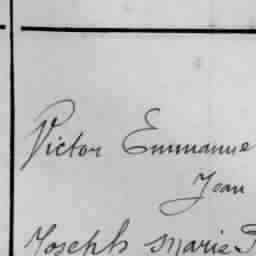 Victor Emmanue
Jean
Joseph Marie